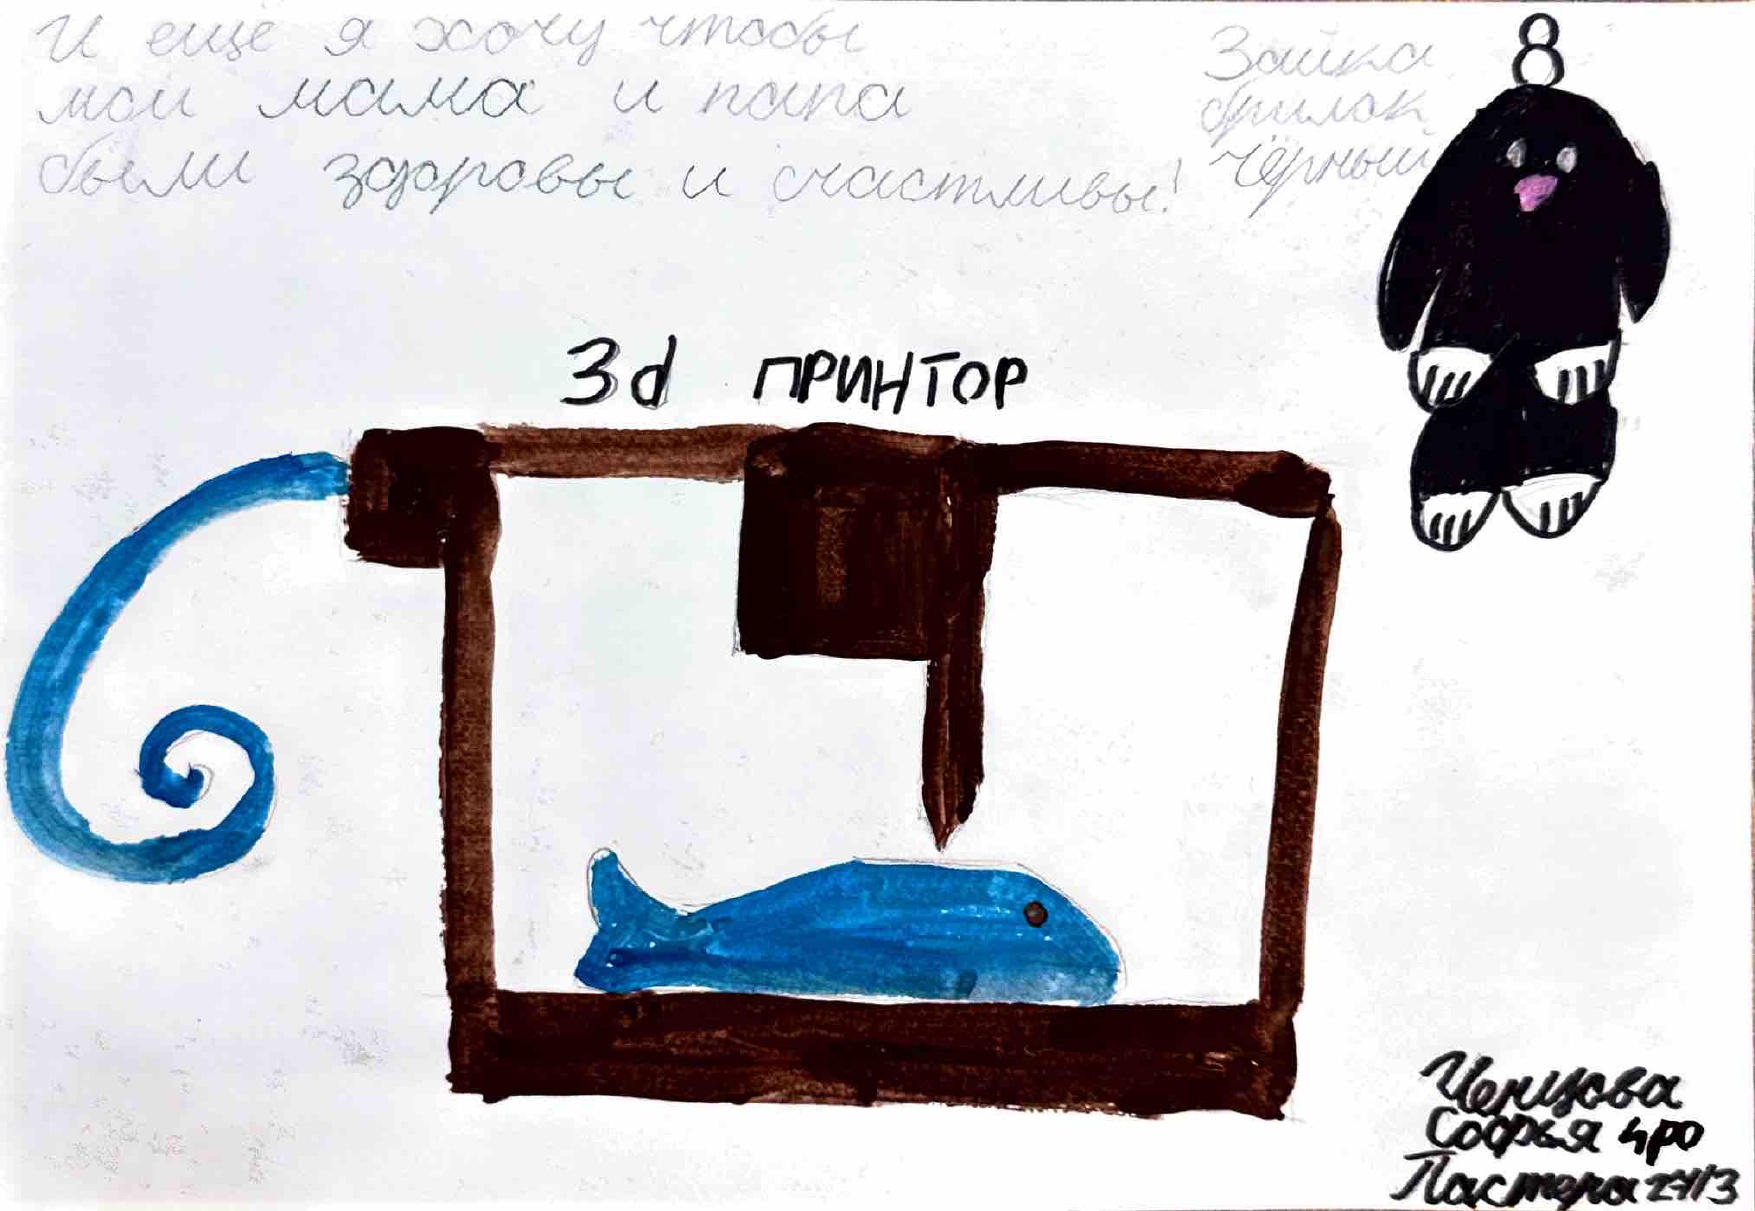 И ещё я хочу чтобы
мои мама и папа
были здоровы и счастливы!
Зайка
брилок
чёрный
3d ПРИНТОР
Ченцова
Софья 4РО
Пастера 27/13